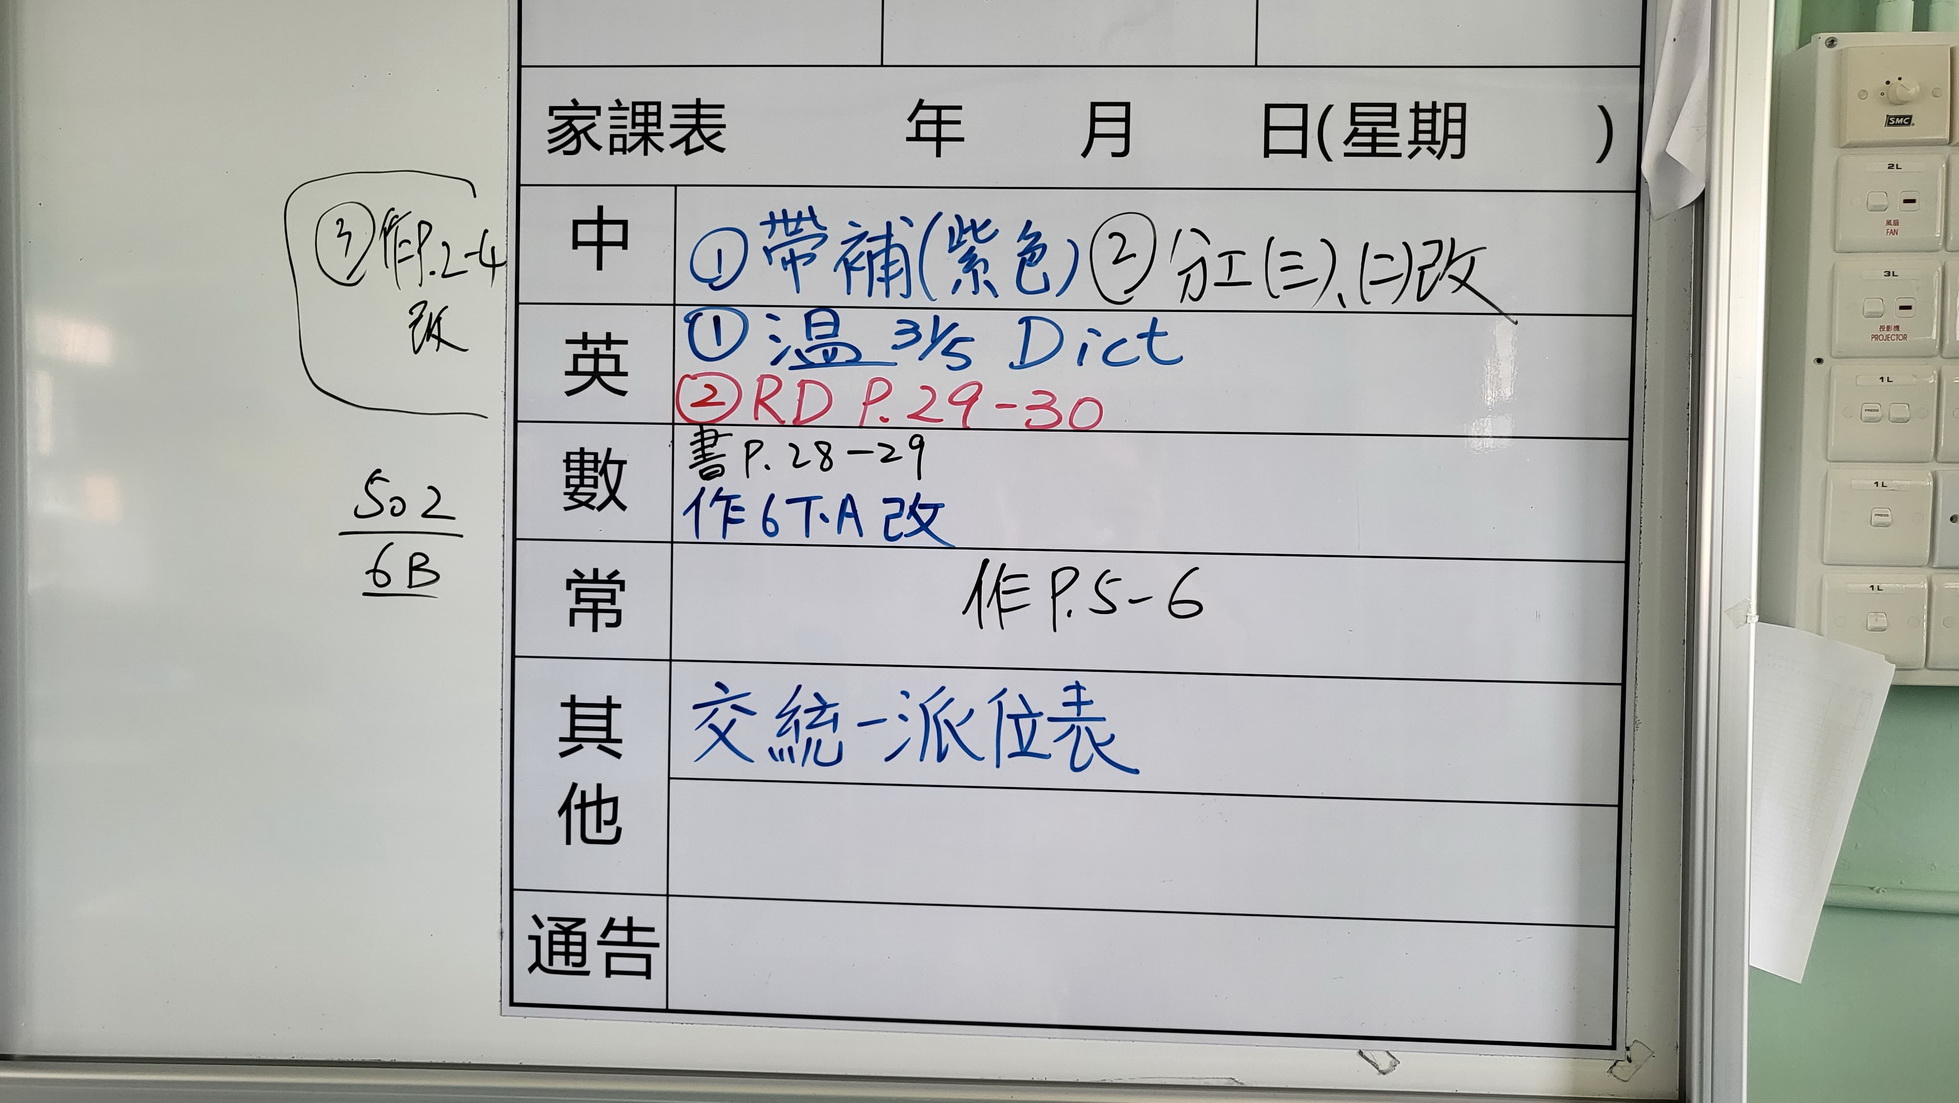 家課表 年 月 日(星期 )
中
①帶補(紫色)②分工(三)、(二)改
③作P.2-4
改
英
①温 31/5 Dict
②RD P.29-30
數
書P.28-29
作6下A改
502
6B
常
作P.5-6
其他
交統一派位表
通告
SMC
2L
風扇
FAN
3L
投影機
PROJECTOR
1L
PRESS
1L
PRESS
1L